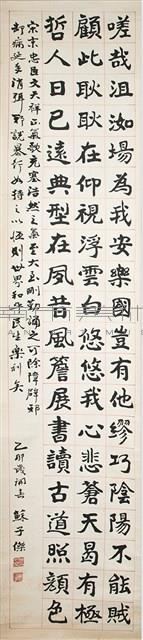 嗟哉沮洳場為我安樂國豈有他繆巧陰陽不能賊
顧此耿耿在仰視浮雲白悠悠我心悲蒼天曷有極
哲人日已遠典型在夙昔風簷展書讀古道照顏色
宋宗忠臣文天祥正氣歌充塞浩然之氣至大至剛勤誦之可除障辟邪
却病延年消弭邪說暴行如持之以恆則世界和平民生樂利矣
乙卯歲 蘇子傑